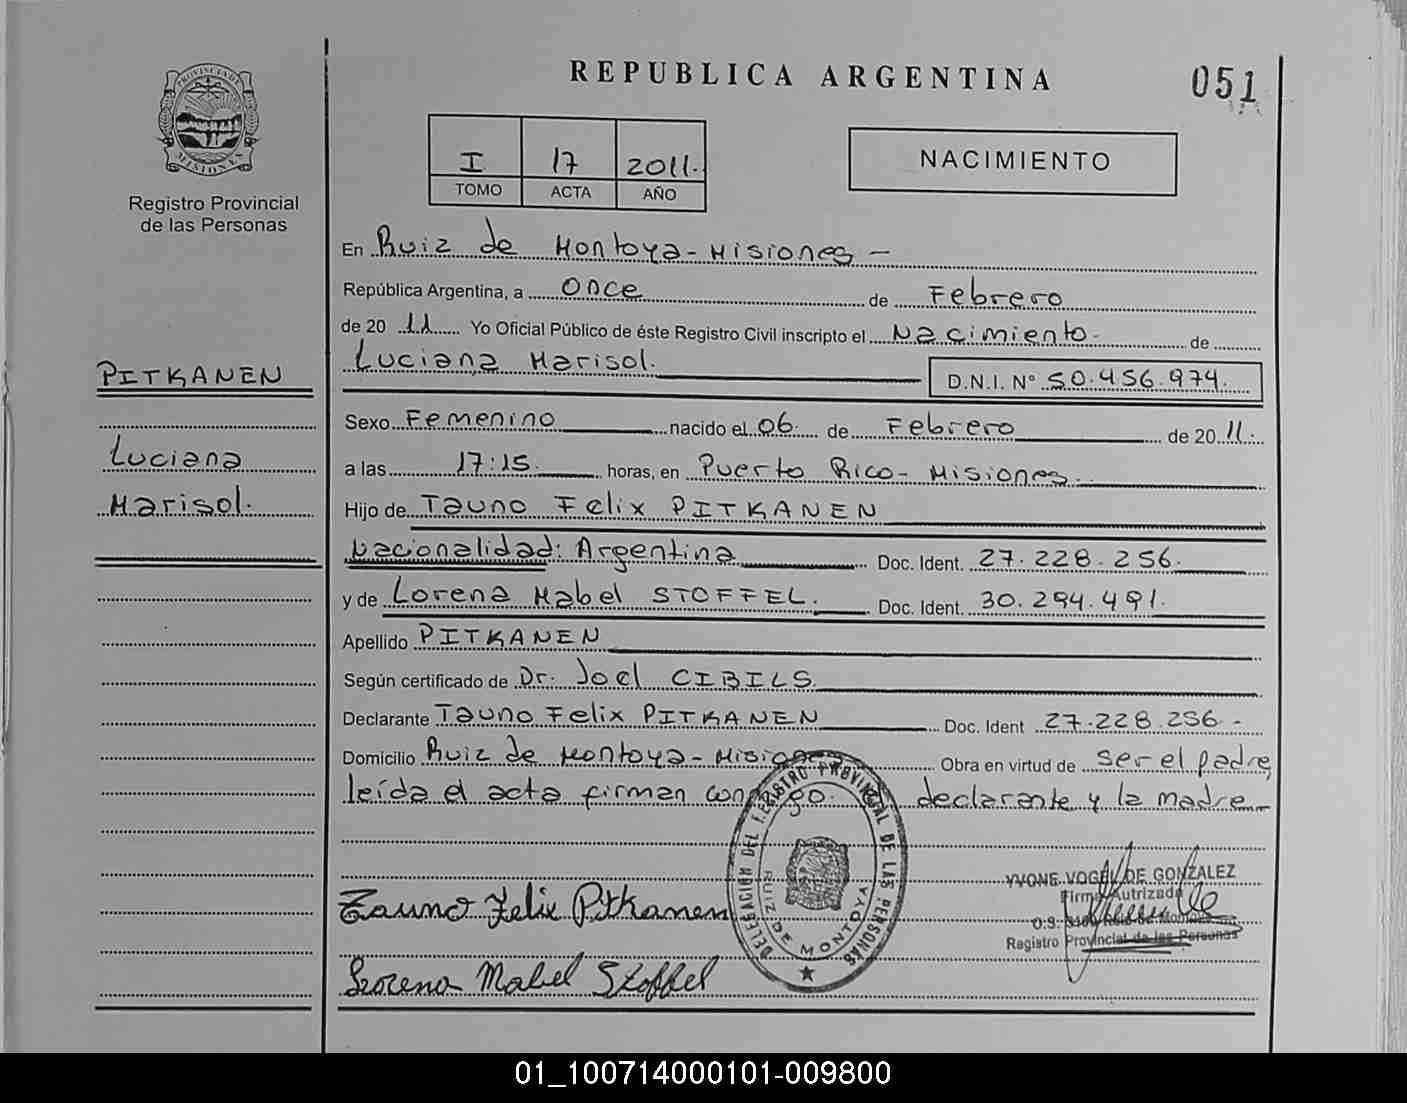 REPUBLICA ARGENTINA
051
PROVINCIA DE
MISIONES
Registro Provincial
de las Personas
I 17 2011.
TOMO ACTA AÑO
NACIMIENTO
En Ruiz de Montoya - Misiones -
República Argentina, a once de Febrero
de 20 11 Yo Oficial Público de éste Registro Civil inscripto el Nacimiento. de
Luciana Marisol. D.N.I. N° 50.456.974.
PITKANEN
Luciana
Marisol.
Sexo Femenino nacido el 06. de Febrero de 20 11.
a las 17:15. horas, en Puerto Rico - Misiones.
Hijo de Tauno Felix PITKANEN
Nacionalidad: Argentina Doc. Ident. 27.228.256.
y de Lorena Mabel STOFFEL. Doc. Ident. 30.294.491.
Apellido PITKANEN
Según certificado de Dr. Joel CIBILS.
Declarante Tauno Felix PITKANEN Doc. Ident 27.228.256 -
Domicilio Ruiz de Montoya - Misiones Obra en virtud de ser el padre,
leída el acta firman conmigo. el declarante y la madre
DELEGACIÓN DEL REGISTRO PROVINCIAL DE LAS PERSONAS
RUIZ DE MONTOYA
YVONE VOGEL DE GONZALEZ
Firma Autrizada
Registro Provincial de las Personas
Tauno Felix Pitkanen
Lorena Mabel Stoffel
01_100714000101-009800